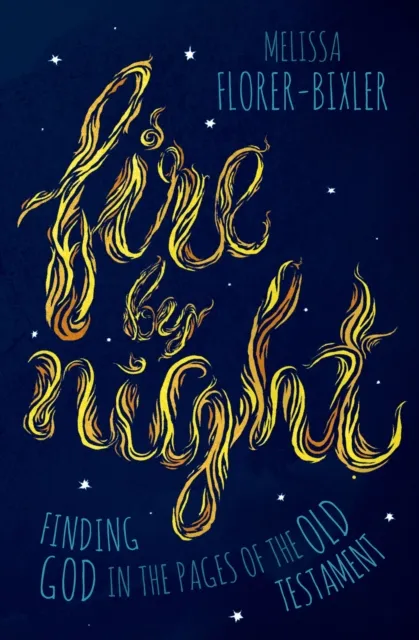 MELISSA
FLORER-BIXLER
fire
by
night
FINDING
GOD IN THE PAGES OF THE OLD
TESTAMENT